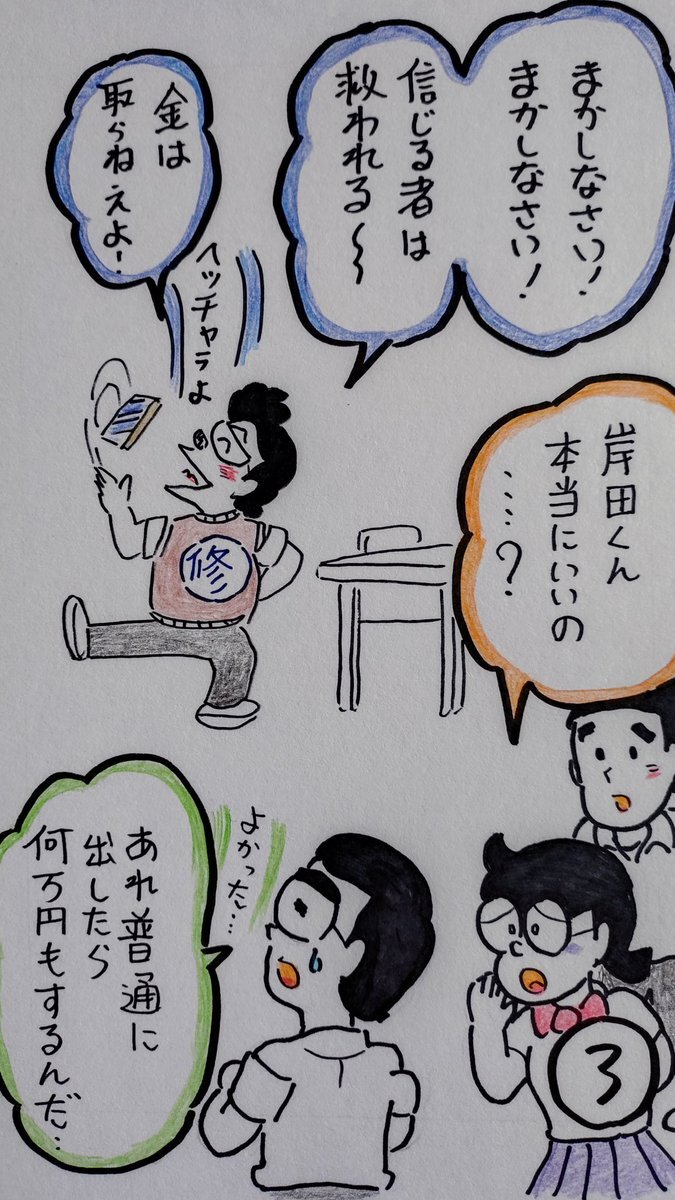 まかしなさい!
まかしなさい!
信じる者は
救われる〜
金は
取らねえよ!
ヘッチャラよ
修
岸田くん
本当にいいの
……?
よかった…
あれ普通に
出したら
何万円もするんだ…
3